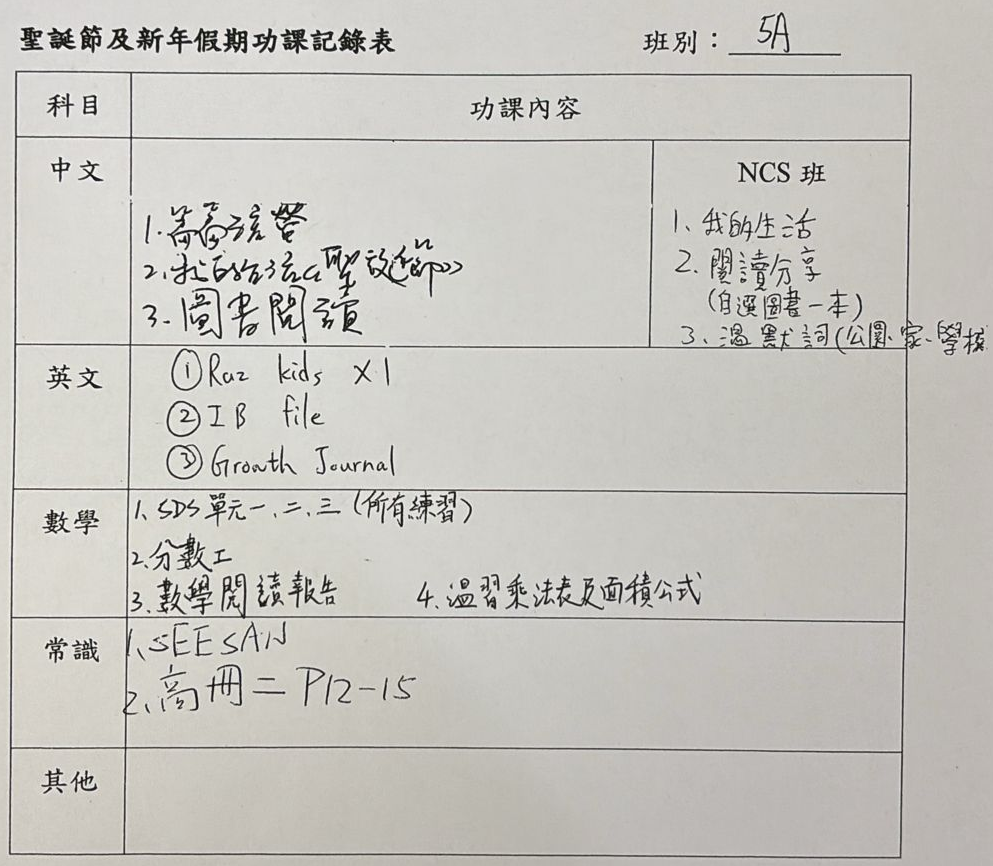 聖誕節及新年假期功課記錄表
班別：5A
科目
功課內容
中文
NCS 班
1.
2. 我的 《聖誕節》
3. 圖書閱讀
1、我的生活
2、閱讀分享
(自選圖書一本)
3、溫默詞(公園、家、學校
英文
① Raz kids ×1
② IB file
③ Growth Journal
數學
1、SDS 單元一、二、三 (所有練習)
2、分數工
3、數學閱讀報告
4、溫習乘法表及面積公式
常識
1、SEESAW
2、高冊二 P12-15
其他